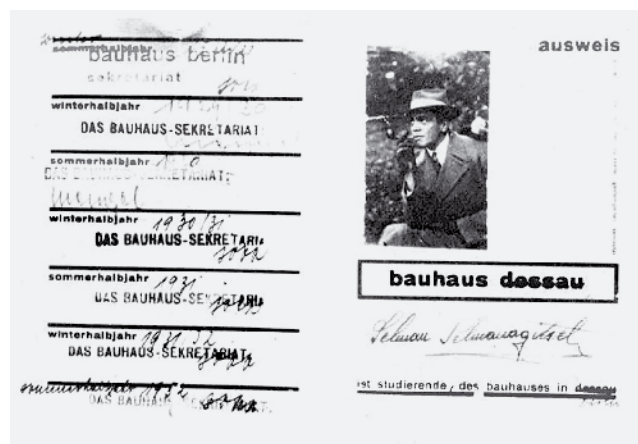 sommerhalbjahr
bauhaus berlin
sekretariat
winterhalbjahr 1929/30
DAS BAUHAUS-SEKRETARIAT
sommerhalbjahr
DAS BAUHAUS-SEKRETARIAT
winterhalbjahr 1930/31
DAS BAUHAUS-SEKRETARIAT
sommerhalbjahr 1931
DAS BAUHAUS-SEKRETARIAT
winterhalbjahr 1931/32
DAS BAUHAUS-SEKRETARIAT
sommerhalbjahr 1932
DAS BAUHAUS-SEKRETARIAT
ausweis
bauhaus dessau
Selman Selmanagitsch
ist studierende, des bauhauses in dessau